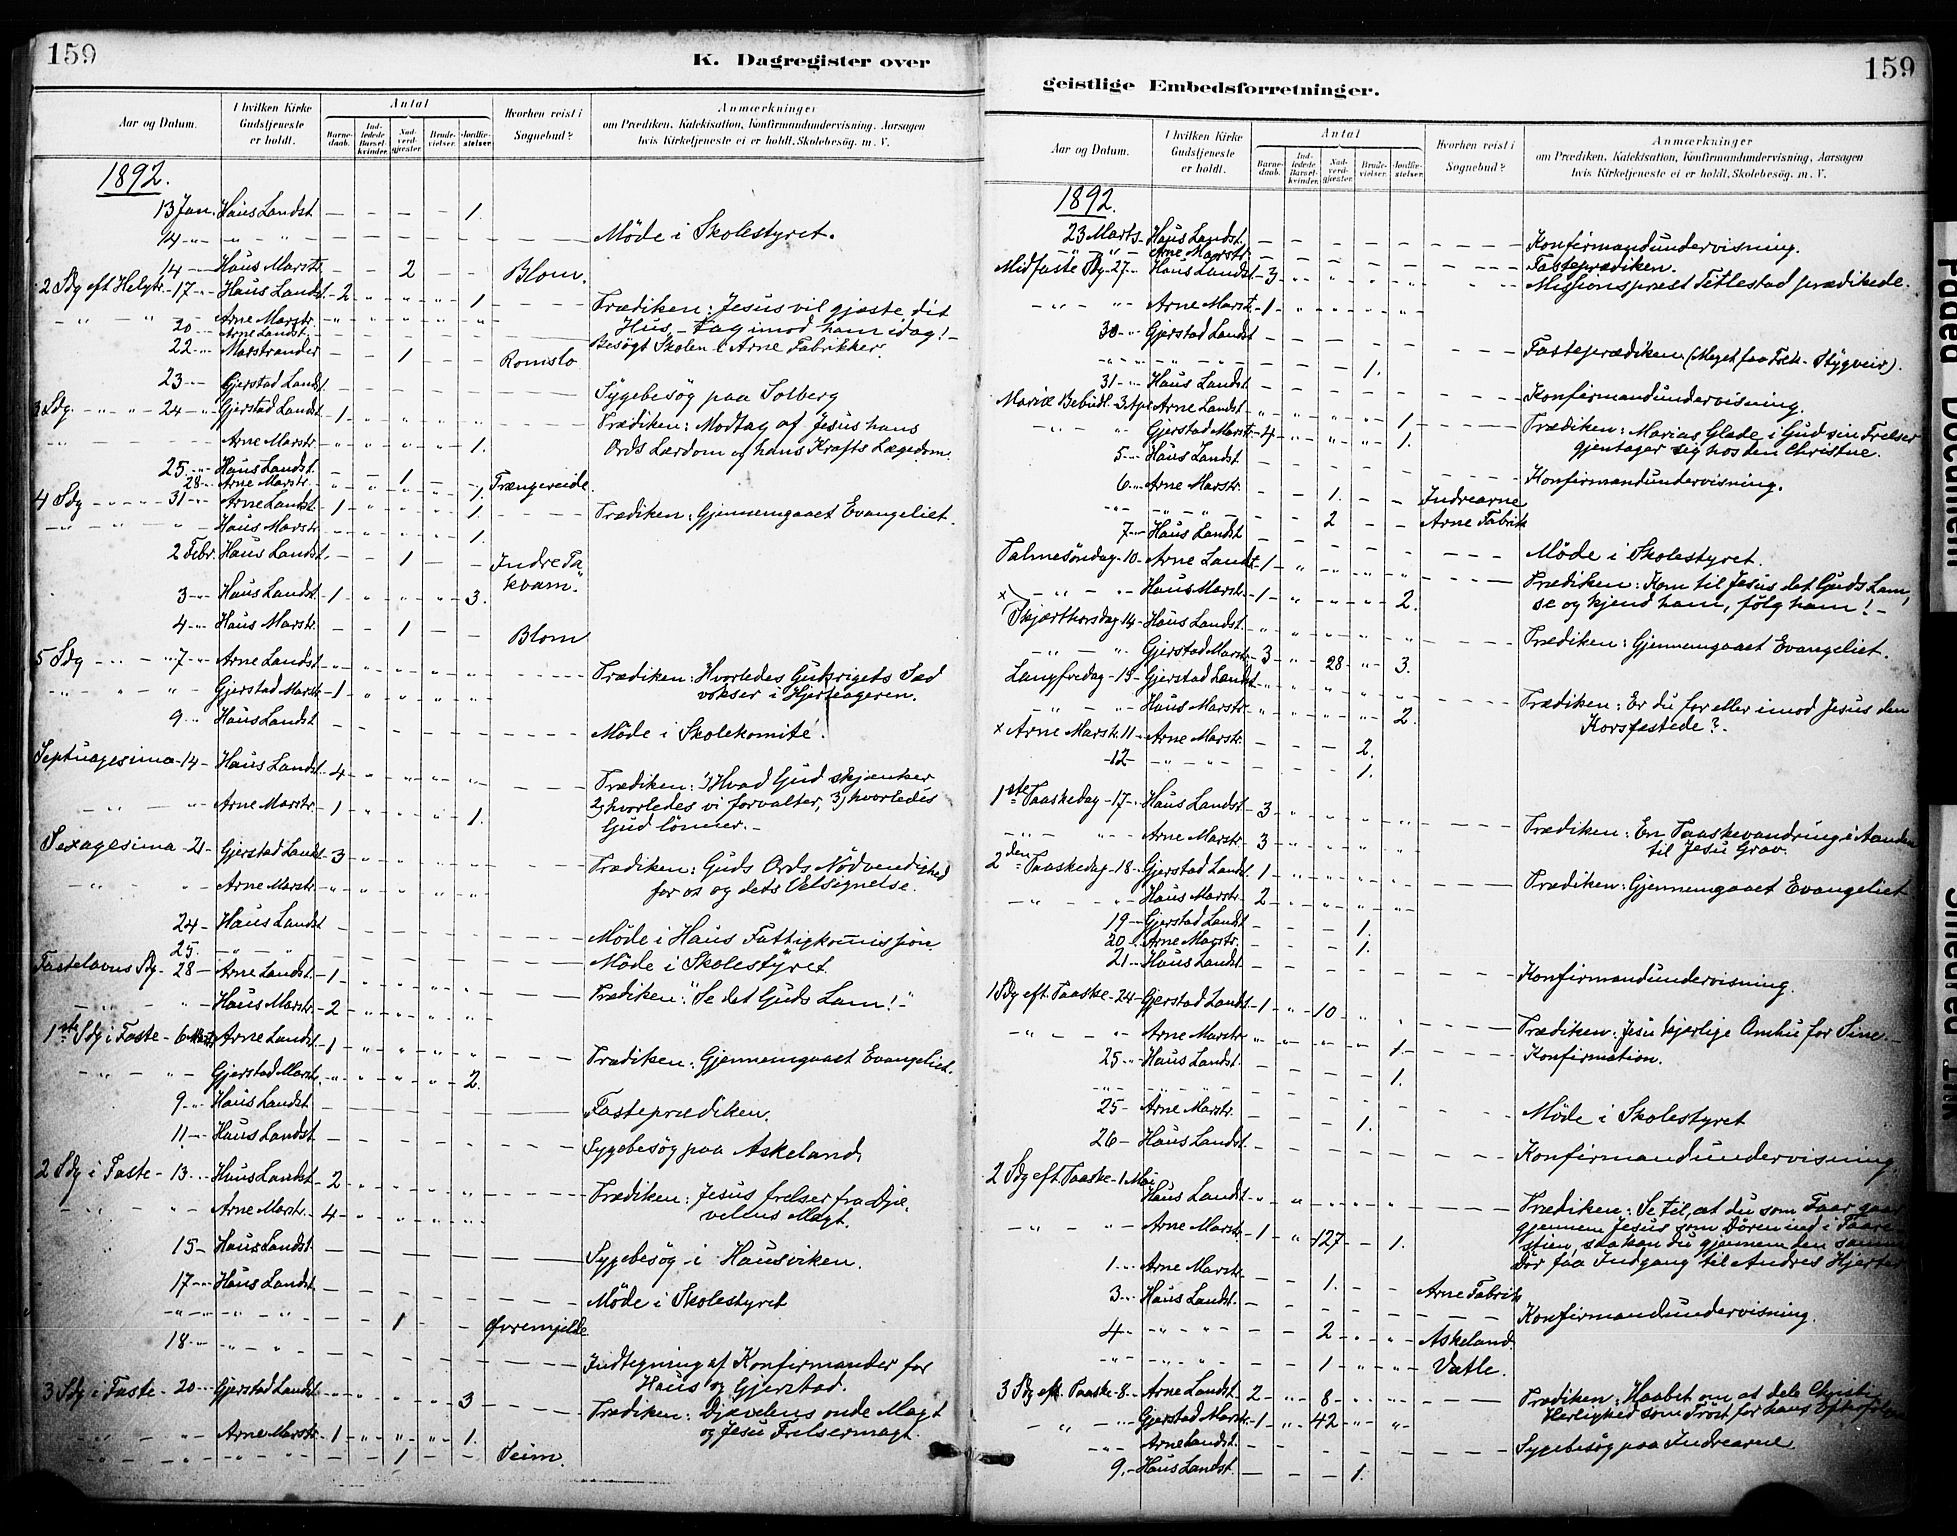 159
K. Dagregister over
Aar og Datum.
I hvilken Kirke Gudstjeneste er holdt.
Antal
Barnedaab.
Indledede Barselkvinder.
Nadverdgjester.
Brudevielser.
Jordfæstelser.
Hvorhen reist i Sognebud?
Anmærkninger
om Prædiken, Katekisation, Konfirmandundervisning, Aarsagen
hvis Kirketjeneste ei er holdt, Skolebesøg, m. V.
1892.
13 Jan. Haus Landst. — — — — 1.
14 -"- " - " - — — — — — Møde i Skolestyret.
14 -"- Haus Marstr. — — 2 — — Blom.
2 Sdg eft Helgtr. - 17 -"- Haus Landst. - 2 " " " 1. — Prædiken: Jesus vil gjæste dit
- " - " - Arne Marstr. " " " " " Hus, - Tag imod ham idag! -
20 -"- Arne Landst. Besøgt Skolen i Arne Fabrikker.
22 -"- Marstrander — — 1 — — Romslo
23 -"- Gjerstad Landst. — — — — — Sygebesøg paa Solberg
3 Sdg. - " - " - 24 -"- Gjerstad Landst. - 1 - " " " " Prædiken: Modtag af Jesus hans
Arne Marstr. " " " " 1. Ords Lærdom og hans Krafts Lægedom.
25 -"- Haus Landst. — — 1 — — Trængereide.
28 -"- Arne Marstr. " " " " 1.
4 Sdg - " - " - 31 -"- Arne Landst. - 1 " " " 1. Prædiken: Gjennemgaaet Evangeliet.
- " - " - " - Haus Marstr. " " " " 1.
2 Febr. Haus Landst. — — 1 — — Indre Ta
kvam."
3 -"- Haus Landst. - 1 " " " 3.
4 -"- Haus Marstr. — — 1 — — Blom
5 Sdg - " - " 7 -"- Arne Landst. " " " " " Prædiken: Hvorledes Gudsrigets Sæd
- " - " - " - Gjerstad Marstr. - 1 " " " " vokser i Hjerteageren.
9 -"- Haus Landst. — — — — — Møde i Skolekomité.
Septuagesima - 14 - Haus Landst. - 4 " " " " Prædiken: 1) Hvad Gud skjænker
- " - " - Arne Marstr. - 1 " " " 1. 2) hvorledes vi forvalter, 3) hvorledes
Gud lønner. -
Sexagesima - 21 - Gjerstad Landst. 3 " " " " Prædiken: Guds Ords Nødvendighed
- " - " - Arne Marstr. " " " " " for os og dets Velsignelse.
24 - Haus Landst. — — — — — Møde i Haus Fattigkommission.
25. - " - " — — — — — Møde i Skolestyret
Fastelavns Sdg - 28 - Arne Landst. - 1 " " " " Prædiken: "Se det Guds Lam! - "
- " - " - Haus Marstr. 2 " " " "
1ste Sdg i Faste - 6 Marts Arne Landst. - 1 " " " " Prædiken: Gjennemgaaet Evangeliet.
- " - " - Gjerstad Marstr. " " " " 2.
9 -"- Haus Landst. — — — — — Fasteprædiken.
11 -"- Haus Landst. — — — — — Sygebesøg paa Askeland,
2 Sdg i Faste - 13 -"- Haus Landst. - 2 " " " " Prædiken: Jesus frelser fra Djæ
- " - " - Arne Marstr. - 4 " " " " velens Magt.
15 - Haus Landst. — — — — — Sygebesøg i Hausviken.
17 -"- Haus Landst. — — — — — Møde i Skolestyret
- " - " - " — — 1 — — Øvremjelde
18 -"- " - " — — — — — Indtegning af Konfirmander for
Haus og Gjerstad.
3 Sdg i Faste - 20 -"- Gjerstad Landst. " " " " 3 Prædiken: Djævelens onde Magt
- " - " - Arne Marstr. - 1 " " " 1. og Jesu Frelsermagt.
- " - " - " — — 1 — — Seim.
159
geistlige Embedsforretninger.
Aar og Datum.
I hvilken Kirke Gudstjeneste er holdt.
Antal
Barnedaab.
Indledede Barselkvinder.
Nadverdgjester.
Brudevielser.
Jordfæstelser.
Hvorhen reist i Sognebud?
Anmærkninger
om Prædiken, Katekisation, Konfirmandundervisning, Aarsagen
hvis Kirketjeneste ei er holdt, Skolebesøg, m. V.
1892.
23 Marts. Haus Landst. — — — — — Konfirmandundervisning.
- " - Arne Marstr. — — — — — Fasteprædiken.
Midfaste Sdg - 27 -"- Haus Landst. - 3 " " " " Missionsprest Titlestad prædikede.
- " - " - Arne Marstr. - 1 " " " "
30 -"- Gjerstad Landst. — — — — — Fasteprædiken. (Meget faa Folk - Stygveir).
- " - " - " — — — 1.
31 -"- Haus Landst. — — — — — Konfirmandundervisning.
Mariæ Bebudl. - 3 Apl. Arne Landst. " " " " 1. Prædiken: Marias Glæde i Gud sin Frelser
- " - " Gjerstad Marstr. - 4 " " " 1. gjentager sig hos den Christne.
5 -"- Haus Landst. — — — — — Konfirmandundervisning.
6 -"- Arne Marstr. — — 1. — — Indrearne
- " - " - " — — 2 — — Arne Fabrik
7 -"- Haus Landst. — — — — — Møde i Skolestyret.
Palmesøndag - 10 - Arne Landst. - 1 " " " " Prædiken: Kom til Jesus det Guds Lam,
x - " - " - Haus Marstr. - 1 " " " 2. se og kjend ham, følg ham! -
Skjærthorsdag 14 - Haus Landst. " " " " " Prædiken: Gjennemgaaet Evangeliet.
- " - " - Gjerstad Marstr. - 3 " 28 " 3.
Langfredag - 15 - Gjerstad Landst. " " " " " Prædiken: Er du for eller imod Jesus den
- " - " - Haus Marstr. " " " " 2. Korsfæstede?
x Arne Marstr. 11 - Arne Marstr. — — — 2.
-12- - " - " — — — 1.
1ste Paaskedag - 17 -"- Haus Landst. - 3 " " " " Prædiken: En Paaskevandring i Aanden
- " - " - Arne Marstr. 3 " " " " til Jesu Grav.
2den Paaskedag - 18 - Gjerstad Landst. 1 " " " " Prædiken: Gjennemgaaet Evangeliet
- " - " - Haus Marstr. - 2 " " " "
19 - Gjerstad Landst. — — — 1.
20 -"- Arne Marstr. — — — 1.
21 - Haus Landst. — — — — — Konfirmandundervisning.
1 Sdg eft. Paaske - 24 - Gjerstad Landst. - 1 " 10 " " Prædiken: Jesu kjærlige Omhu for Sine. -
- " - " - Arne Marstr. " " " " 1. Konfirmation.
25 -"- Haus Landst. — — — — 1.
- " - " - " — — — — — Møde i Skolestyret
25 - Arne Marstr. — — — 1.
26 - Haus Landst. — — — — — Konfirmandundervisning.
2 Sdg eft Paaske - 1 Mai Haus Landst. " " " " " Prædiken: Se til, at du som Faar gaar
- " - " - Arne Marstr. - 1 " 127 — 1. gjennem Jesus som Døren ind i Faare
stien, saa kan du gjennem den samme
Dør faa Indgang til Andres Hjerter
1 -"- Arne Marstr. — — 1. — — Arne Fabrik
3 -"- Haus Landst. — — — — — Konfirmandundervisning.
4 -"- " - " — — 2 " " Askeland.
- " - " - " — — 1 " " Vatle.
3 Sdg eft. Paaske - 8 -"- Arne Landst. 2 " 8 " " Prædiken: Haabet om at dele Christi
" - " Gjerstad Marstr. - 1 " 42 " " Herlighed som Trøst for hans
- " - Arne Landst. — — — — — Sygebesøg paa Indrearne
9. - Haus Landst. — — — 1.
Faded Document